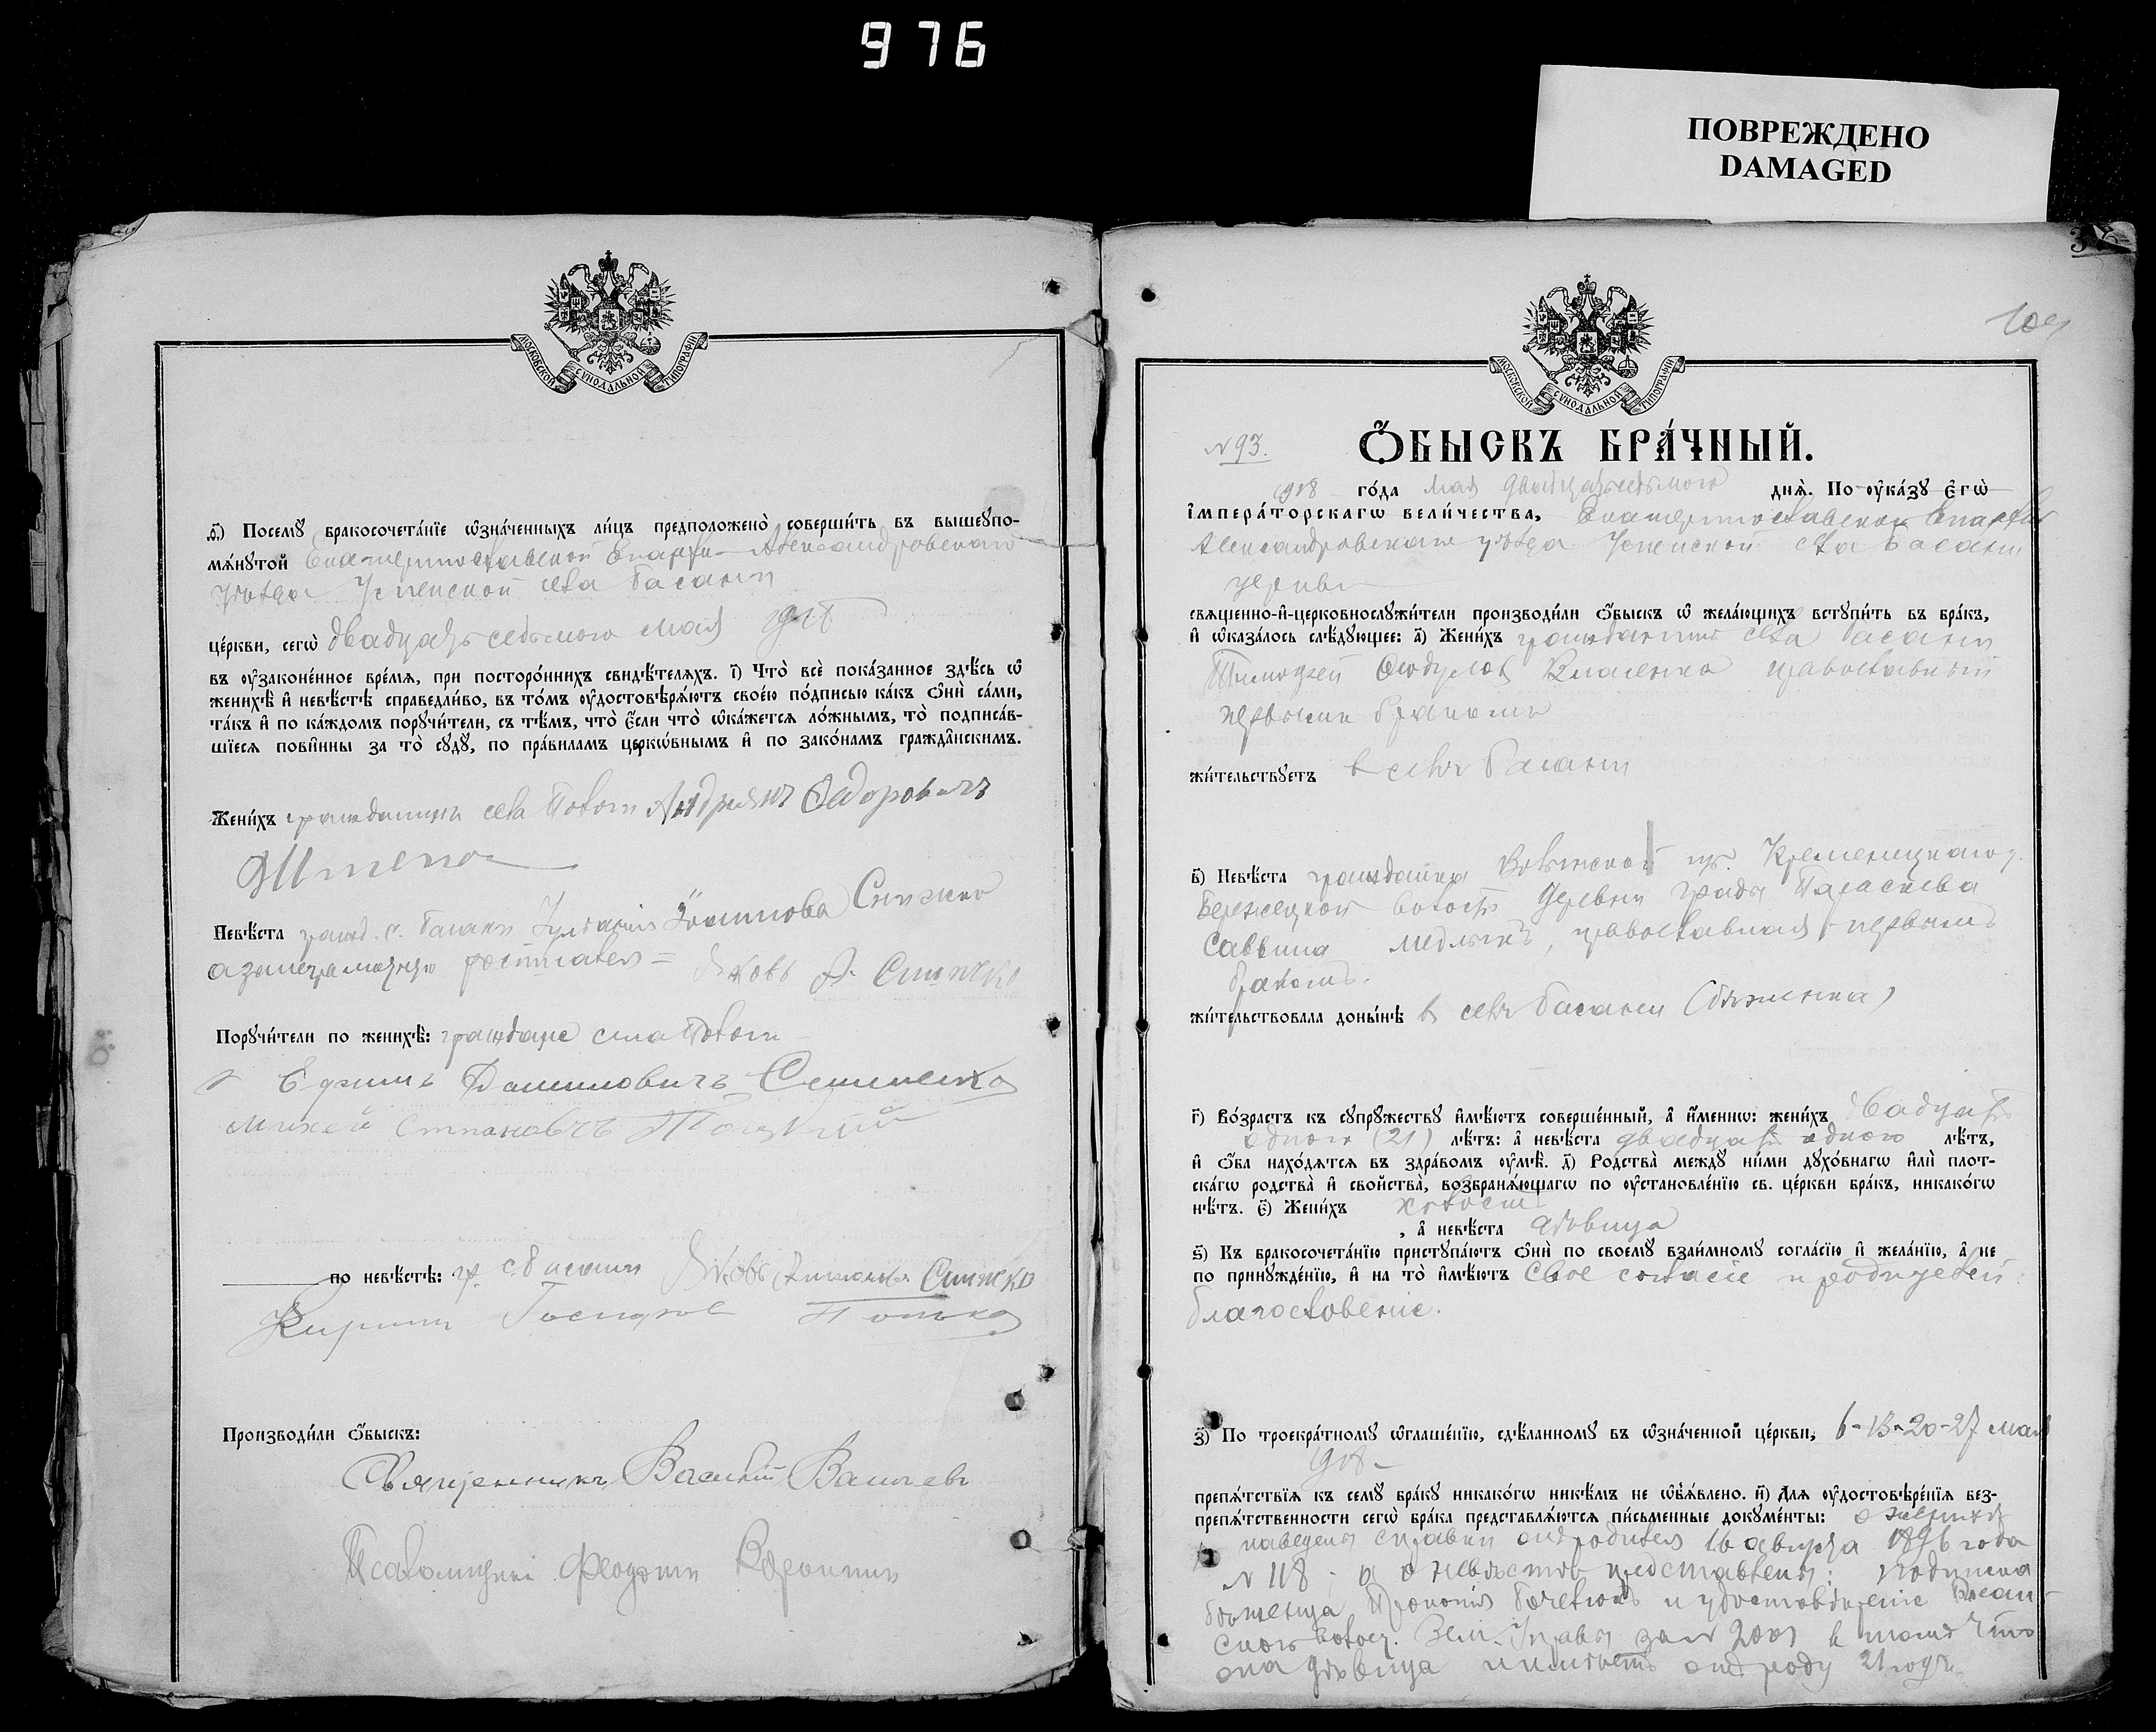 976
ПОВРЕЖДЕНО
DAMAGED
МОСКОВСКОЙ СУНОДАЛЬНОЙ ТИПОГРАФІИ
ѳ҃) Посемꙋ бракосочета́нїе ѡ҆зна́ченныхъ ли́цъ предположено̀ соверши́ть въ вышеꙋпо-
мѧ́нꙋтой Екатеринославской Епархіи Александровскаго
уѣзда Успенской села Басани
це́ркви, сегѡ̀ двадцать седьмого мая 1918
въ ᲂу҆зако́ненное вре́мѧ, при посторо́ннихъ свидѣ́телѧхъ. і҃) Что̀ всѐ пока́занное здѣ́сь ѡ҆
женихѣ̀ и҆ невѣ́стѣ справедли́во, въ то́мъ ᲂу҆достовѣрѧ́ютъ свое́ю по́дписью ка́къ ѻ҆нѝ са́ми,
та́къ и҆ по ка́ждомъ порꙋчи́тели, съ тѣ́мъ, что̀ є҆́сли что̀ ѡ҆ка́жетсѧ ло́жнымъ, то̀ подписа́в-
шїесѧ пови́нны за то̀ сꙋдꙋ̀, по пра́виламъ церко́внымъ и҆ по зако́намъ гражда́нскимъ.
Жени́хъ гражданинъ села Пологи Андріянъ Федоровичъ
Штепа
Невѣ́ста гражд. с. Басани Іоакимова Снижко
а за неграмотную Яковъ Снижко
Порꙋчи́тели по женихѣ̀: граждане села Пологи
Ефимъ Даниловичъ Семненко
Михей
по невѣ́стѣ: гр. с. Басани Яковъ Снижко
Кирилъ
Производи́ли ѻ҆́быскъ:
Священникъ Василій
Псаломщикъ
МОСКОВСКОЙ СУНОДАЛЬНОЙ ТИПОГРАФІИ
N 93.
Ѻ҆́БЫСКЪ БРА́ЧНЫЙ.
1918 го́да мая двадцать седьмого днѧ̀. По ᲂу҆ка́зꙋ є҆гѡ̀
і҆мпера́торскагѡ вели́чества, Екатеринославской Епархіи
Александровскаго уѣзда Успенской села Басани
церкви
свѧще́нно-и҆-церковнослꙋжи́тели производи́ли ѻ҆́быскъ ѡ҆ жела́ющихъ встꙋпи́ть въ бра́къ,
и҆ ѡ҆каза́лось слѣ́дꙋющее: а҃) Жени́хъ гражданинъ села Басани
Тимофей православный
первымъ бракомъ
жи́тельствꙋетъ въ селѣ Басани
в҃) Невѣ́ста гражданка Волынской губ. Кременецкаго у.
Бережецкой волости деревни Параскева
Саввина православная, первымъ
бракомъ.
жи́тельствовала доны́нѣ въ селѣ Басани (бѣженка)
г҃) Во́зрастъ къ сꙋпрꙋ́жествꙋ и҆мѣ́ютъ соверше́нный, а҆ и҆́меннѡ: жени́хъ двадцать
одного (21) лѣ́тъ: а҆ невѣ́ста двадцать одного лѣ́тъ,
и҆ ѻ҆́ба нахо́дѧтсѧ въ здра́вомъ ᲂу҆мѣ̀. д҃) Родства̀ междꙋ̀ ни́ми дꙋхо́внагѡ и҆лѝ пло́т-
скагѡ родства̀ и҆ свойства̀, возбранѧ́ющагѡ по ᲂу҆становле́нїю св. це́ркви бра́къ, никако́гѡ
нѣ́тъ. є҃) Жени́хъ холостъ
, а҆ невѣ́ста дѣвица
ѕ҃) Къ бракосочета́нїю пристꙋпа́ютъ ѻ҆нѝ по своемꙋ̀ взаи́мномꙋ согла́сїю и҆ жела́нїю, а҆ не
по принꙋжде́нїю, и҆ на то̀ и҆мѣ́ютъ свое согласіе и родителей
благословеніе.
з҃) По троекра́тномꙋ ѡ҆глаше́нїю, сдѣ́ланномꙋ въ ѡ҆зна́ченной це́ркви, 6-13-20-27 мая
1918
препѧ́тствїѧ къ семꙋ̀ бра́кꙋ никако́гѡ никѣ́мъ не ѡ҆б̾ѧ́влено. и҃) Длѧ ᲂу҆достовѣре́нїѧ без-
препѧ́тственности сегѡ̀ бра́ка представлѧ́ютсѧ пи́сьменные докꙋме́нты: о женихѣ
наведены справки онъ родился 16 августа 1896 года
N 118; а о невѣстѣ представлены: подписка
бѣженца и удостовѣреніе Басан-
ской волост. Зем. Управы за N 2001 въ томъ что
она дѣвица и имѣетъ отъ роду 21 годъ.